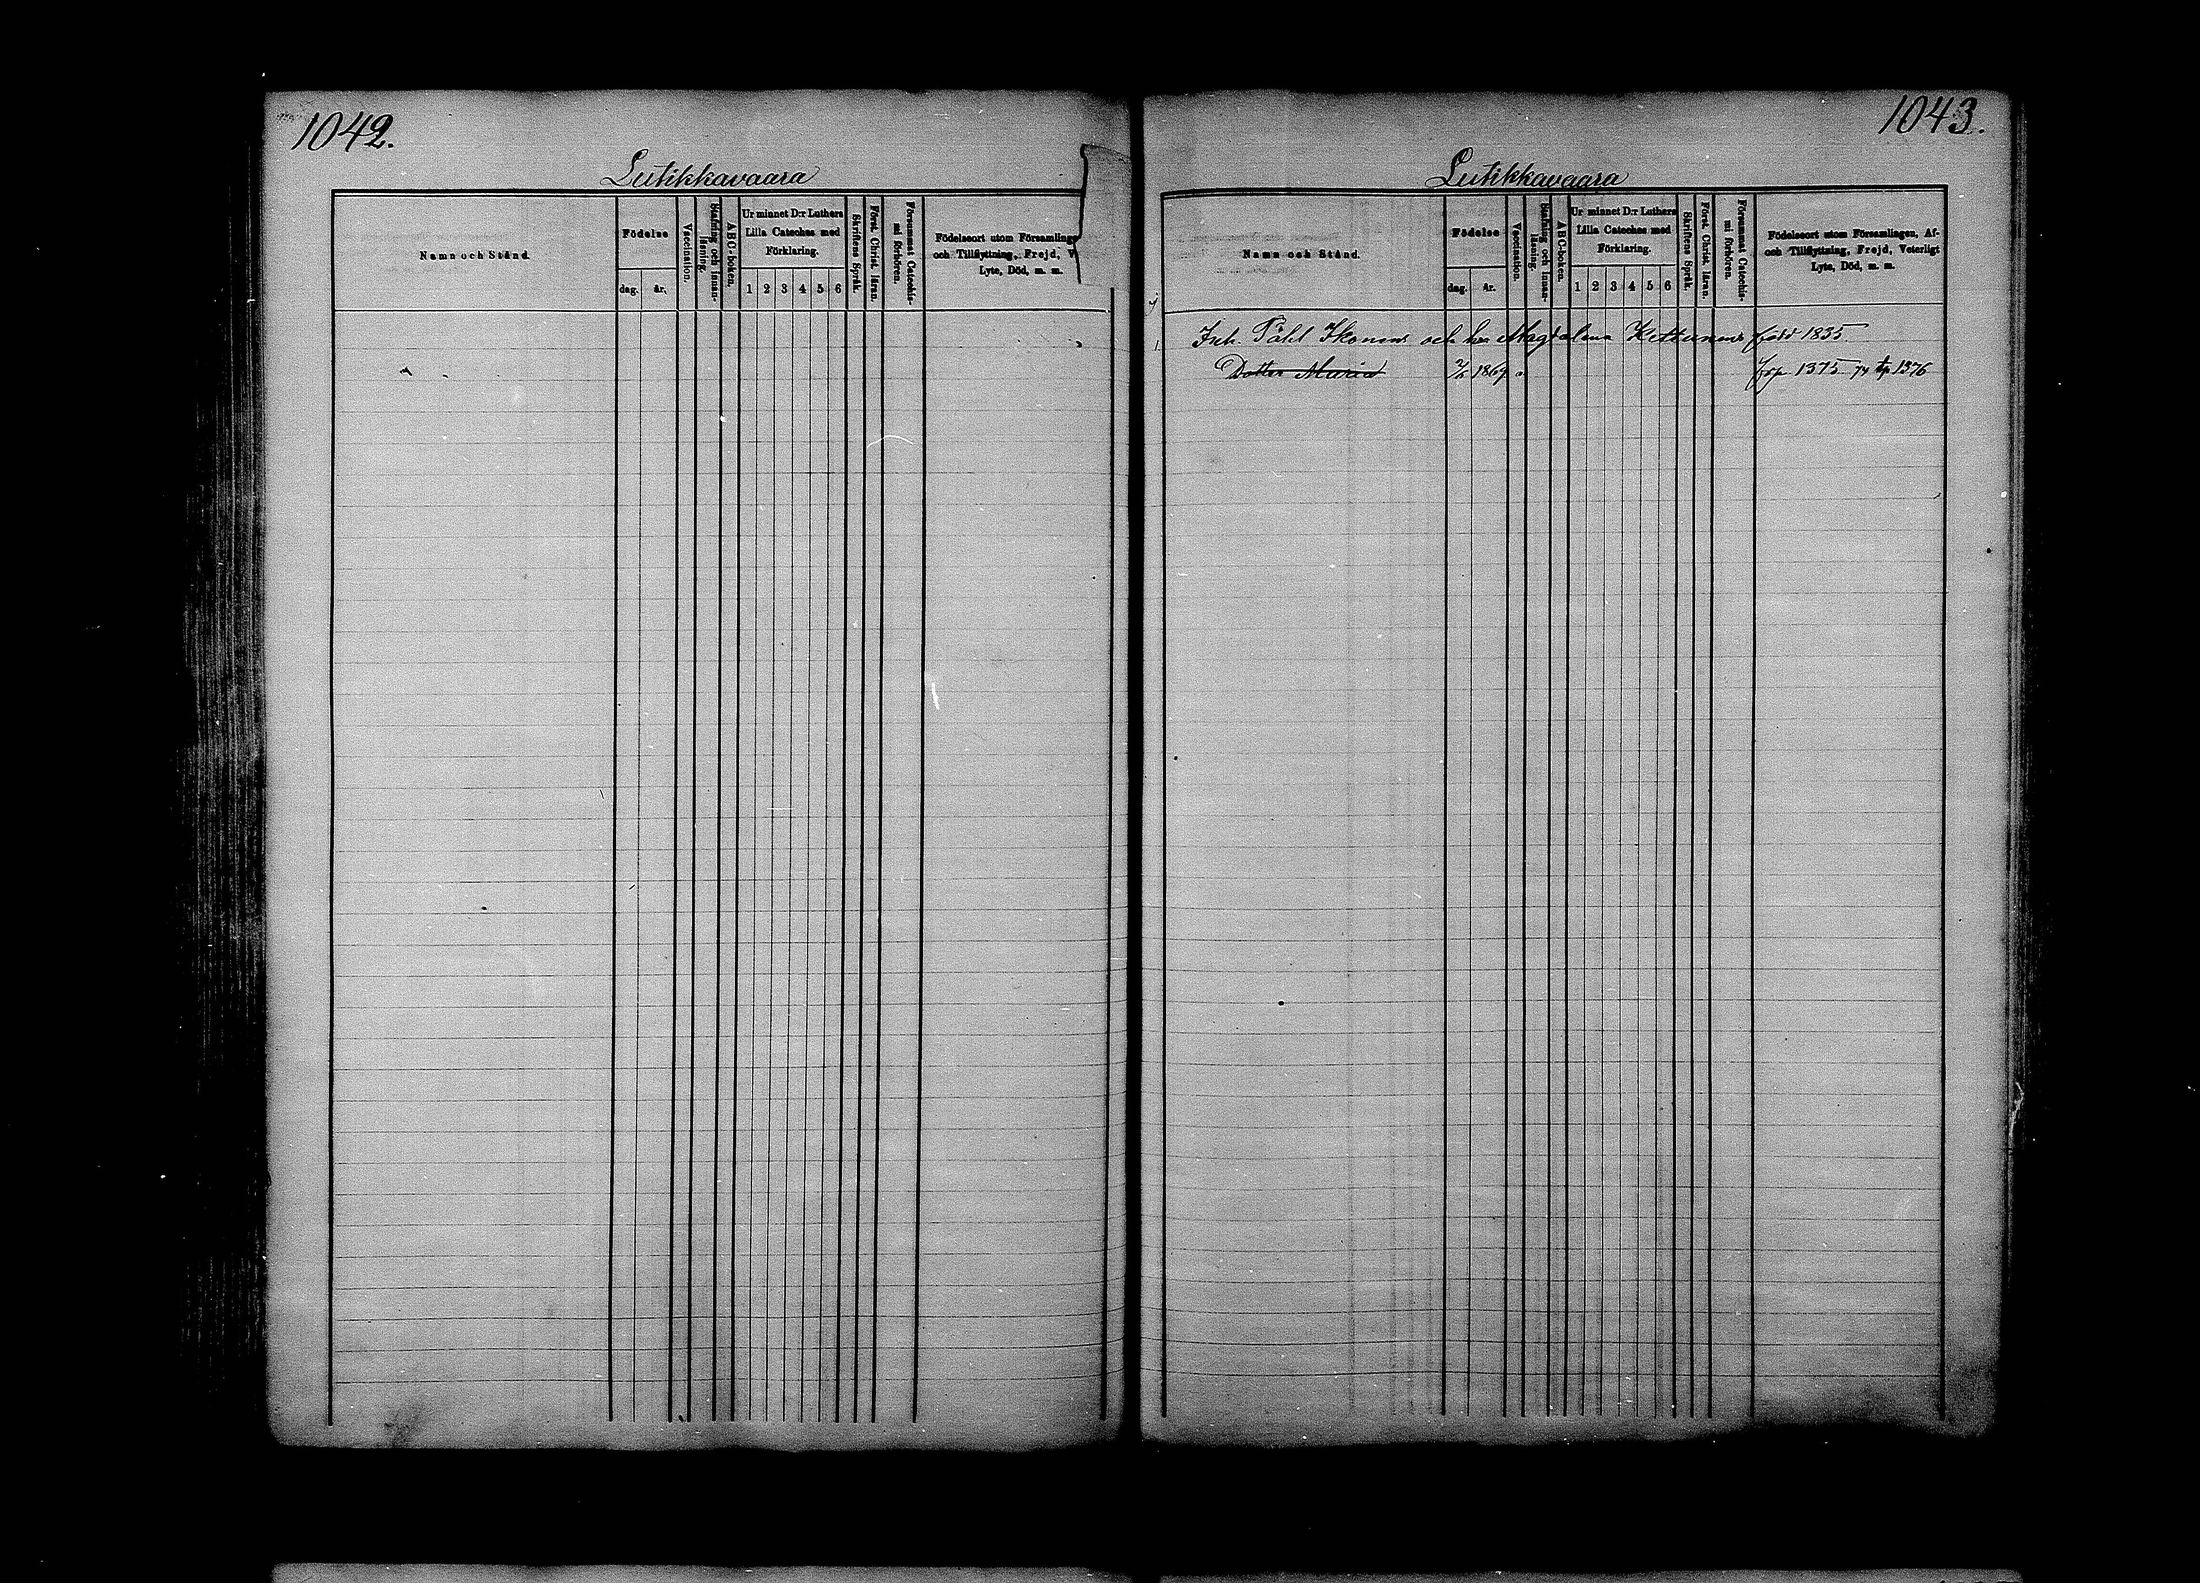 1042.
Lutikkavaara
Namn och Stånd.
Födelse
dag. år.
Vaccination.
Stafning och innan-läsning.
ABC-boken.
Ur minnet D:r Luthers
Lilla Cateches med
Förklaring.
1 2 3 4 5 6
Skriftens Språk.
Först. Christ. läran.
Försummat Catechis-
mi förhören.
Födelseort utom Församling
och Tillflyttning, Frejd, V
Lyte, Död, m. m.
1043.
Lutikkavaara
Namn och Stånd.
Födelse
dag. år.
Vaccination.
Stafning och innan-läsning.
ABC-boken.
Ur minnet D:r Luthers
Lilla Cateches med
Förklaring.
1 2 3 4 5 6
Skriftens Språk.
Först. Christ. läran.
Försummat Catechis-
mi förhören.
Födelseort utom Församlingen, Af-
och Tillflyttning, Frejd, Veterligt
Lyte, Död, m. m.
Inh. Påhl Ikonens och h:s Magdalena Kettunens född 1835
Dotter Maria 1869 frp 1375 74 tp 1376